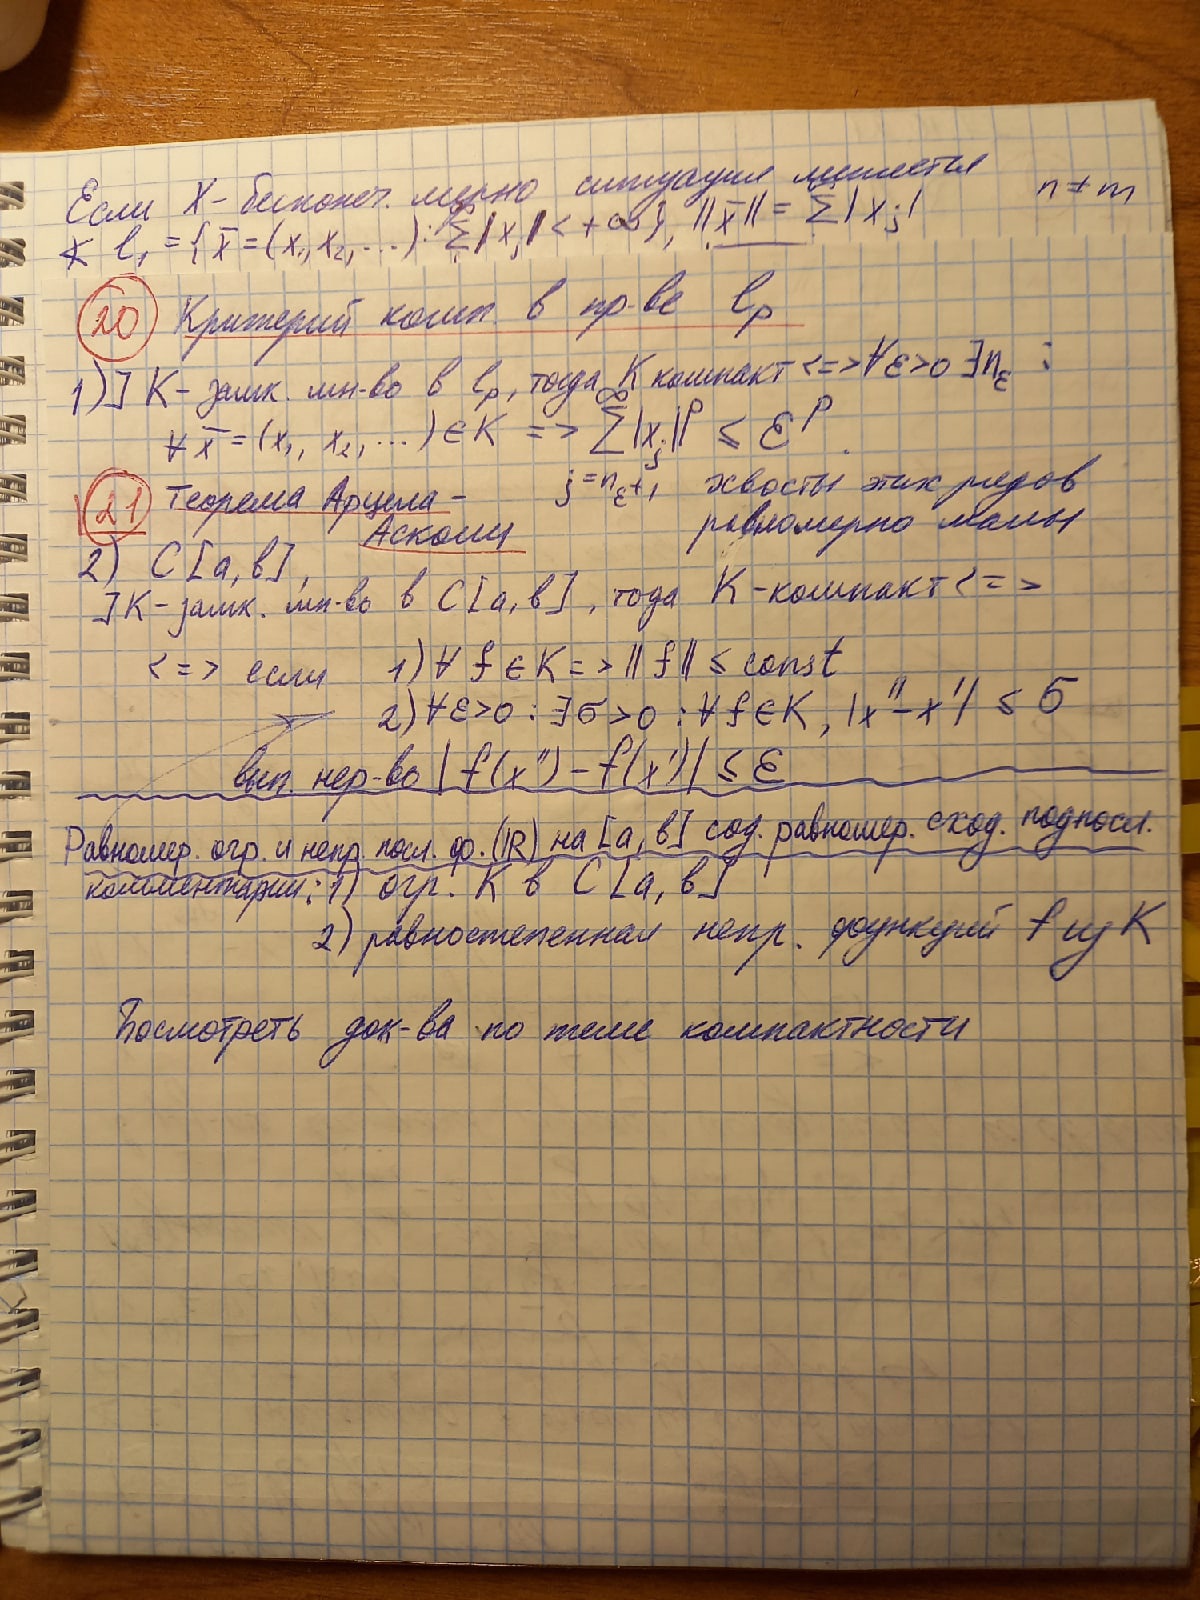 Если X - бесконеч. мерно ситуация меняется n ≠ m
∢ l₁ = { x̅ = (x₁, x₂, ...) : ∑|xⱼ| < +∞}, ||x̅|| = ∑|xⱼ|
20 Критерий комп. в пр-ве lₚ
1) ] K - замк. мн-во в lₚ, тогда K компакт <=> ∀ε>0 ∃n_ε :
∀ x̅ = (x₁, x₂, ...) ∈ K => ∑_{j=n_ε+1}^∞ |xⱼ|^p ≤ ε^p.
хвосты этих рядов
равномерно малы
21 Теорема Арцела -
Асколи
2) C[a, b],
] K - замк. мн-во в C[a, b], тогда K - компакт <=>
<=> если 1) ∀ f ∈ K => || f || ≤ const
2) ∀ε>0 : ∃б>0 : ∀ f ∈ K, |x'' - x'| ≤ б
вып. нер-во | f(x'') - f(x')| ≤ ε
Равномер. огр. и непр. посл. ф. (ℝ) на [a, b] сод. равномер. сход. подпосл.
комментарии: 1) огр. K в C[a, b]
2) равностепенная непр. функций f из K
Посмотреть док-ва по теме компактности